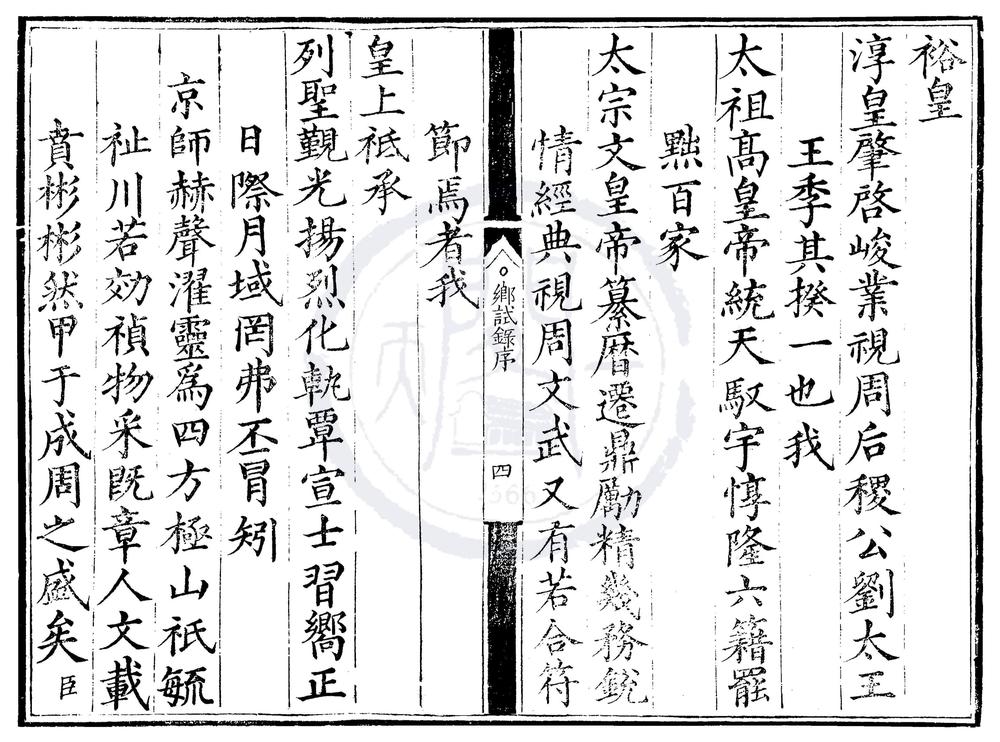 裕皇
淳皇肇啓峻業視周后稷公劉太王
王季其揆一也我
太祖高皇帝統天馭宇惇隆六籍罷
黜百家
太宗文皇帝纂曆遷鼎勵精幾務銳
情經典視周文武又有若合符
鄉試錄序
四
節焉者我
皇上祗承
列聖覲光揚烈化軌覃宣士習嚮正
日際月域罔弗丕冒矧
京師赫聲濯靈為四方極山祇毓
祉川若効禎物采既章人文載
賁彬彬然甲于成周之盛矣臣